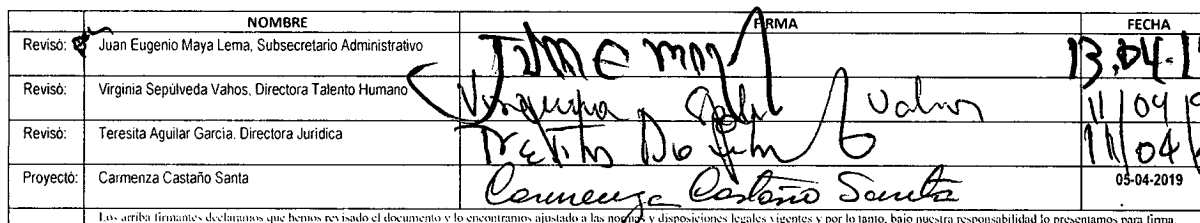 NOMBRE FIRMA FECHA
Revisó: Juan Eugenio Maya Lema, Subsecretario Administrativo 13.04.1
Revisó: Virginia Sepúlveda Vahos, Directora Talento Humano 11/04/19
Revisó: Teresita Aguilar García. Directora Jurídica 11/04/
Proyectó: Carmenza Castaño Santa Carmenza Castaño Santa 05-04-2019
Los arriba firmantes declaramos que hemos revisado el documento y lo encontramos ajustado a las normas y disposiciones legales vigentes y por lo tanto, bajo nuestra responsabilidad lo presentamos para firma.